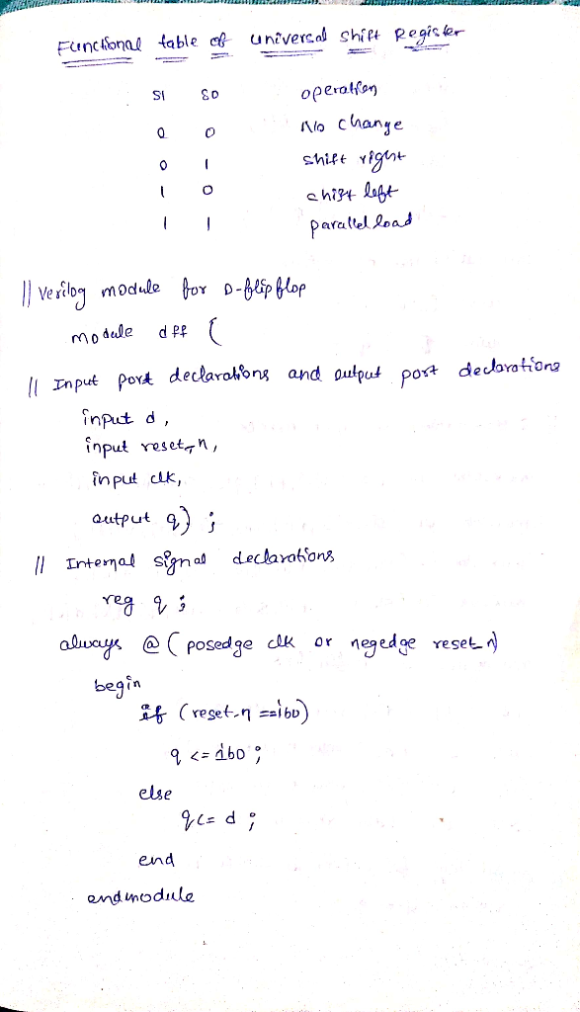 Functional table of universal shift Register
S1 S0 operation
0 0 No change
0 1 shift right
1 0 shift left
1 1 parallel load
// Verilog module for D-flipflop
module dff (
// Input port declarations and output port declarations
input d,
input reset_n,
input clk,
output q) ;
// Internal signal declarations
reg q ;
always @ ( posedge clk or negedge reset_n)
begin
if (reset_n ==1b0)
q <= 1b0 ;
else
q <= d ;
end
endmodule